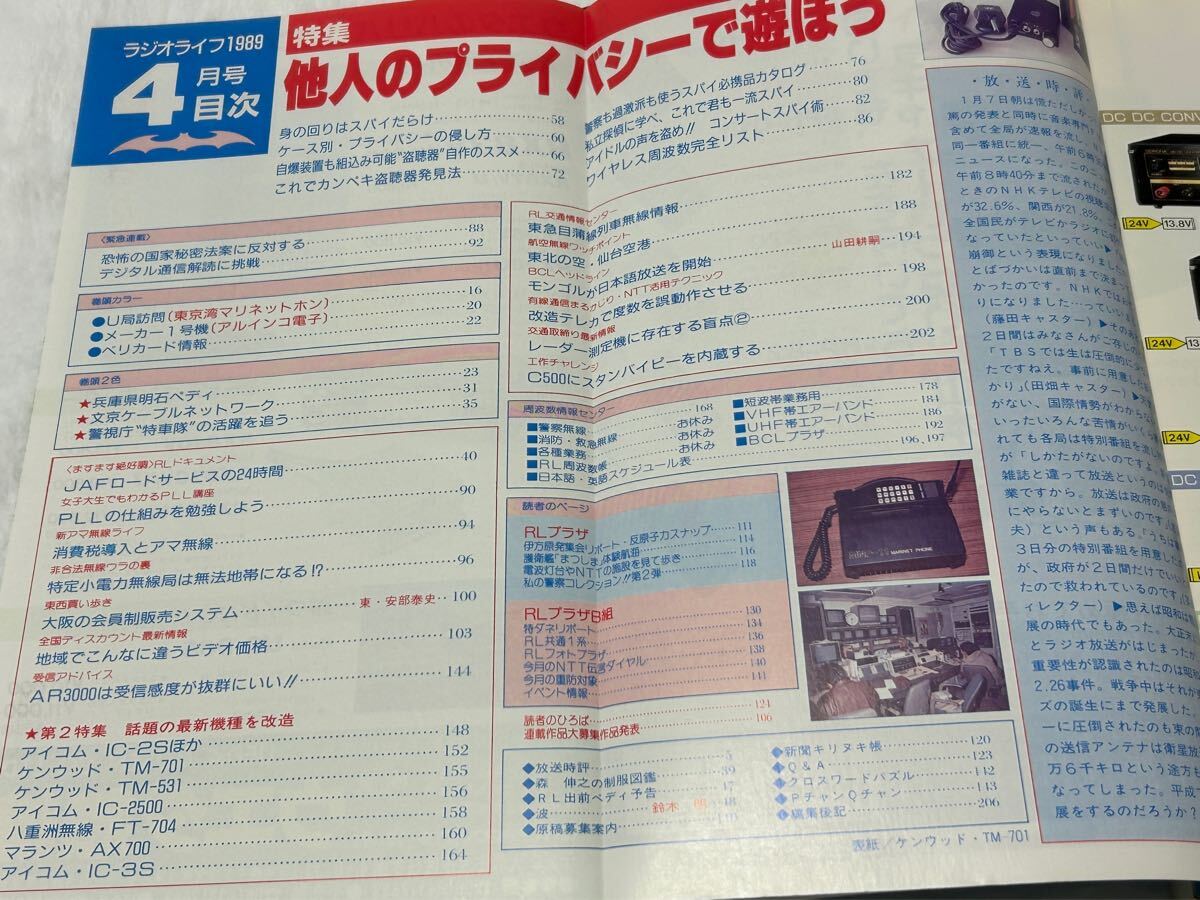 ラジオライフ1989
4月号
目次
特集
他人のプライバシーで遊ぼう
身の回りはスパイだらけ……58
ケース別・プライバシーの侵し方……60
自爆装置も組込み可能“盗聴器”自作のススメ……66
これでカンペキ盗聴器発見法……72
警察も過激派も使うスパイ必携品カタログ……76
私立探偵に学べ、これで君も一流スパイ……80
アイドルの声を盗め!! コンサートスパイ術……82
ワイヤレス周波数完全リスト……86
〈緊急連載〉
恐怖の国家秘密法案に反対する……88
デジタル通信解読に挑戦……92
巻頭カラー
●U局訪問(東京湾マリネットホン)……16
●メーカー1号機(アルインコ電子)……20
●ベリカード情報……22
巻頭2色
★兵庫県明石ペディ……23
★文京ケーブルネットワーク……31
★警視庁“特車隊”の活躍を追う……35
〈ますます絶好調〉RLドキュメント
JAFロードサービスの24時間……40
女子大生でもわかるPLL講座
PLLの仕組みを勉強しよう……90
新アマ無線ライフ
消費税導入とアマ無線……94
非合法無線ウラの裏
特定小電力無線局は無法地帯になる!?……96
東西買い歩き
大阪の会員制販売システム……東・安部泰史…100
全国ディスカウント最新情報
地域でこんなに違うビデオ価格……103
受信アドバイス
AR3000は受信感度が抜群にいい!!……144
★第2特集 話題の最新機種を改造
アイコム・IC-2Sほか……148
ケンウッド・TM-701……152
ケンウッド・TM-531……155
アイコム・IC-2500……156
八重洲無線・FT-704……158
マランツ・AX700……160
アイコム・IC-3S……164
RL交通情報センター
東急目蒲線列車無線情報……182
航空無線ウォッチポイント
東北の空・仙台空港……188
BCLヘッドライン
モンゴルが日本語放送を開始……山田耕嗣…194
有線通信まるかじり・NTT活用テクニック
改造テレカで度数を誤動作させる……198
交通取締り最新情報
レーダー測定機に存在する盲点②……200
工作チャレンジ
C500にスタンバイピーを内蔵する……202
周波数情報センター
■警察無線……168
■消防・救急無線……お休み
■各種業務……お休み
■RL周波数帳……お休み
■日本語・英語スケジュール表……196,197
■短波帯業務用……178
■VHF帯エアーバンド……181
■UHF帯エアーバンド……186
■BCLプラザ……192
読者のページ
RLプラザ
伊方原発集会リポート・反原子力スナップ……111
護衛艦「まつしま」体験航海……114
電波灯台やNTTの施設を見て歩き……116
私の警察コレクション!!第2弾……118
RLプラザB組
特ダネリポート……130
RL共通1系……134
RLフォトプラザ……136
今月のNTT伝言ダイヤル……138
今月の重防対象……140
イベント情報……141
読者のひろば……124
連載作品大募集作品発表……106
MARINET PHONE
◆放送時評……5
◆森 伸之の制服図鑑……39
◆RL出前ペディ予告……17
◆波……鈴木
◆原稿募集案内
◆新聞キリヌキ帳……120
◆Q&A……123
クロスワードパズル……142
PチャンQチャン……143
編集後記……206
表紙/ケンウッド・TM-701
・放・送・時・評・
1月7日朝は慌ただしか
篤の発表と同時に音楽専門
含めて全局が速報を流し
同一番組に統一、午前6時
ニュースになった。この
午前8時40分まで流された
ときのNHKテレビの視聴
が32.6%、関西が21.8%
全国民がテレビかラジオに
なっていたといっていい▶
崩御という表現になりました
とばづかいは直前まで決まっ
かったのです。NHKでは
りになりました…っていい
(藤田キャスター)▶その
2日間はみなさんがご存じの
「TBSでは生は圧倒的に
たですねえ。事前に用意した
かり」(田畑キャスター)
がない、国際情勢がわからな
いったいろんな苦情がいく
れても各局は特別番組を流し
が「しかたがないのですよ
雑誌と違って放送というのは
業ですから。放送は政府の
にやらないとまずいのです
夫)という声もある。「うちは
3日分の特別番組を用意した
が、政府が2日間だけでいい
たので救われているのです」
ィレクター)▶思えば昭和は
展の時代でもあった。大正
とラジオ放送がはじまった
重要性が認識されたのは昭和
2.26事件。戦争中はそれが
ズの誕生にまで発展した。
ーに圧倒されたのも束の間
の送信アンテナは衛星放
万6千キロという途方も
なってしまった。平成
展をするのだろうか?
DC DC CONV
24V
13.8V
24V
13
24V
DC